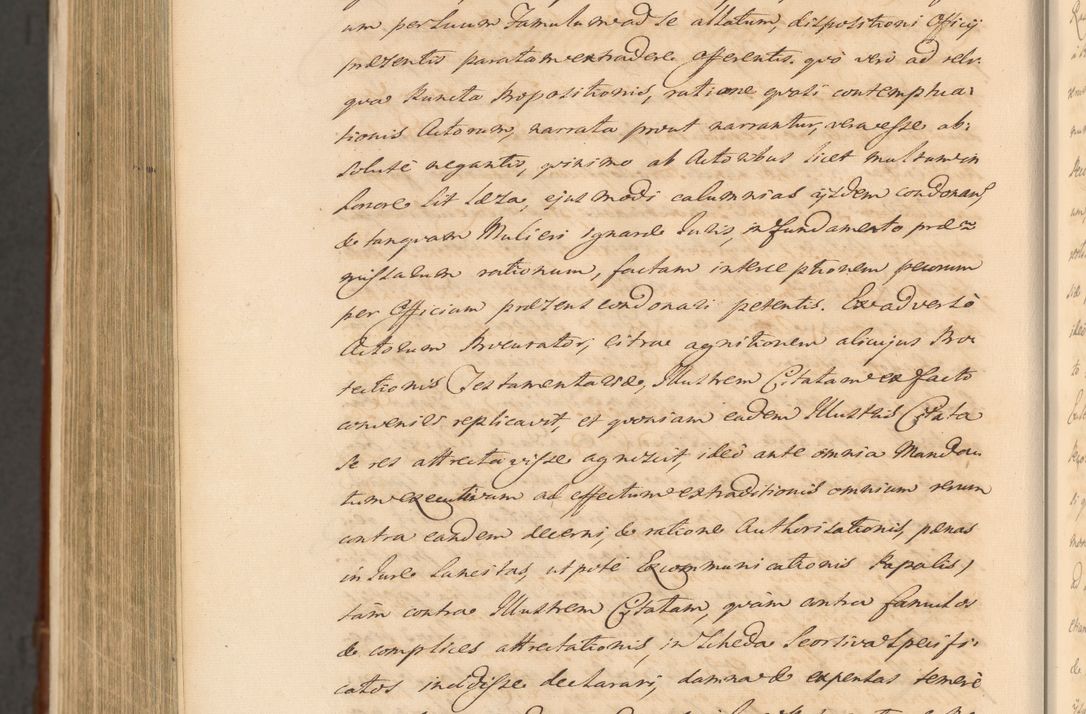 um per suum Famulum ad se allatum, dispositioni Officij
præsentis paratam extradere offerentis. quo vero ad reli-
qua Puncta Propositionis, ratione quasi contempta-
tionis Actorum, narrata prout narrantur, vera esse ab-
soluté negantis, quinimo ab Actoribus licet multum in
honore sit læsa, ejusmodi calumnias ijsdem condonan
de tanquam Mulieri ignaræ Juris, in fundamento præ-
missarum rationum, factam interceptionem pecorum
per Officium præsens condonari petentis. Ex adversò
Actorum Procurator, citra agnitionem alicujus Pro-
tectionis Testamentariæ, Illustrem Citatam ex facto
conveniri replicavit, et quoniam eadem Illustris Citata
se res attrectavisse agnoscit, ideò ante omnia Manda-
tum executivum ad effectum extraditionis omnium rerum
contra eandem decerni, & ratione Authorisationis, pænas
in Jure sancitas, utpote Excommunicationis Papalis,
tàm contra Illustrem Citatam, quàm contra famulos
& complices attrectationis, in Scheda Seorsiva Specifi-
catos incidisse declarari, damna & expensas temerè